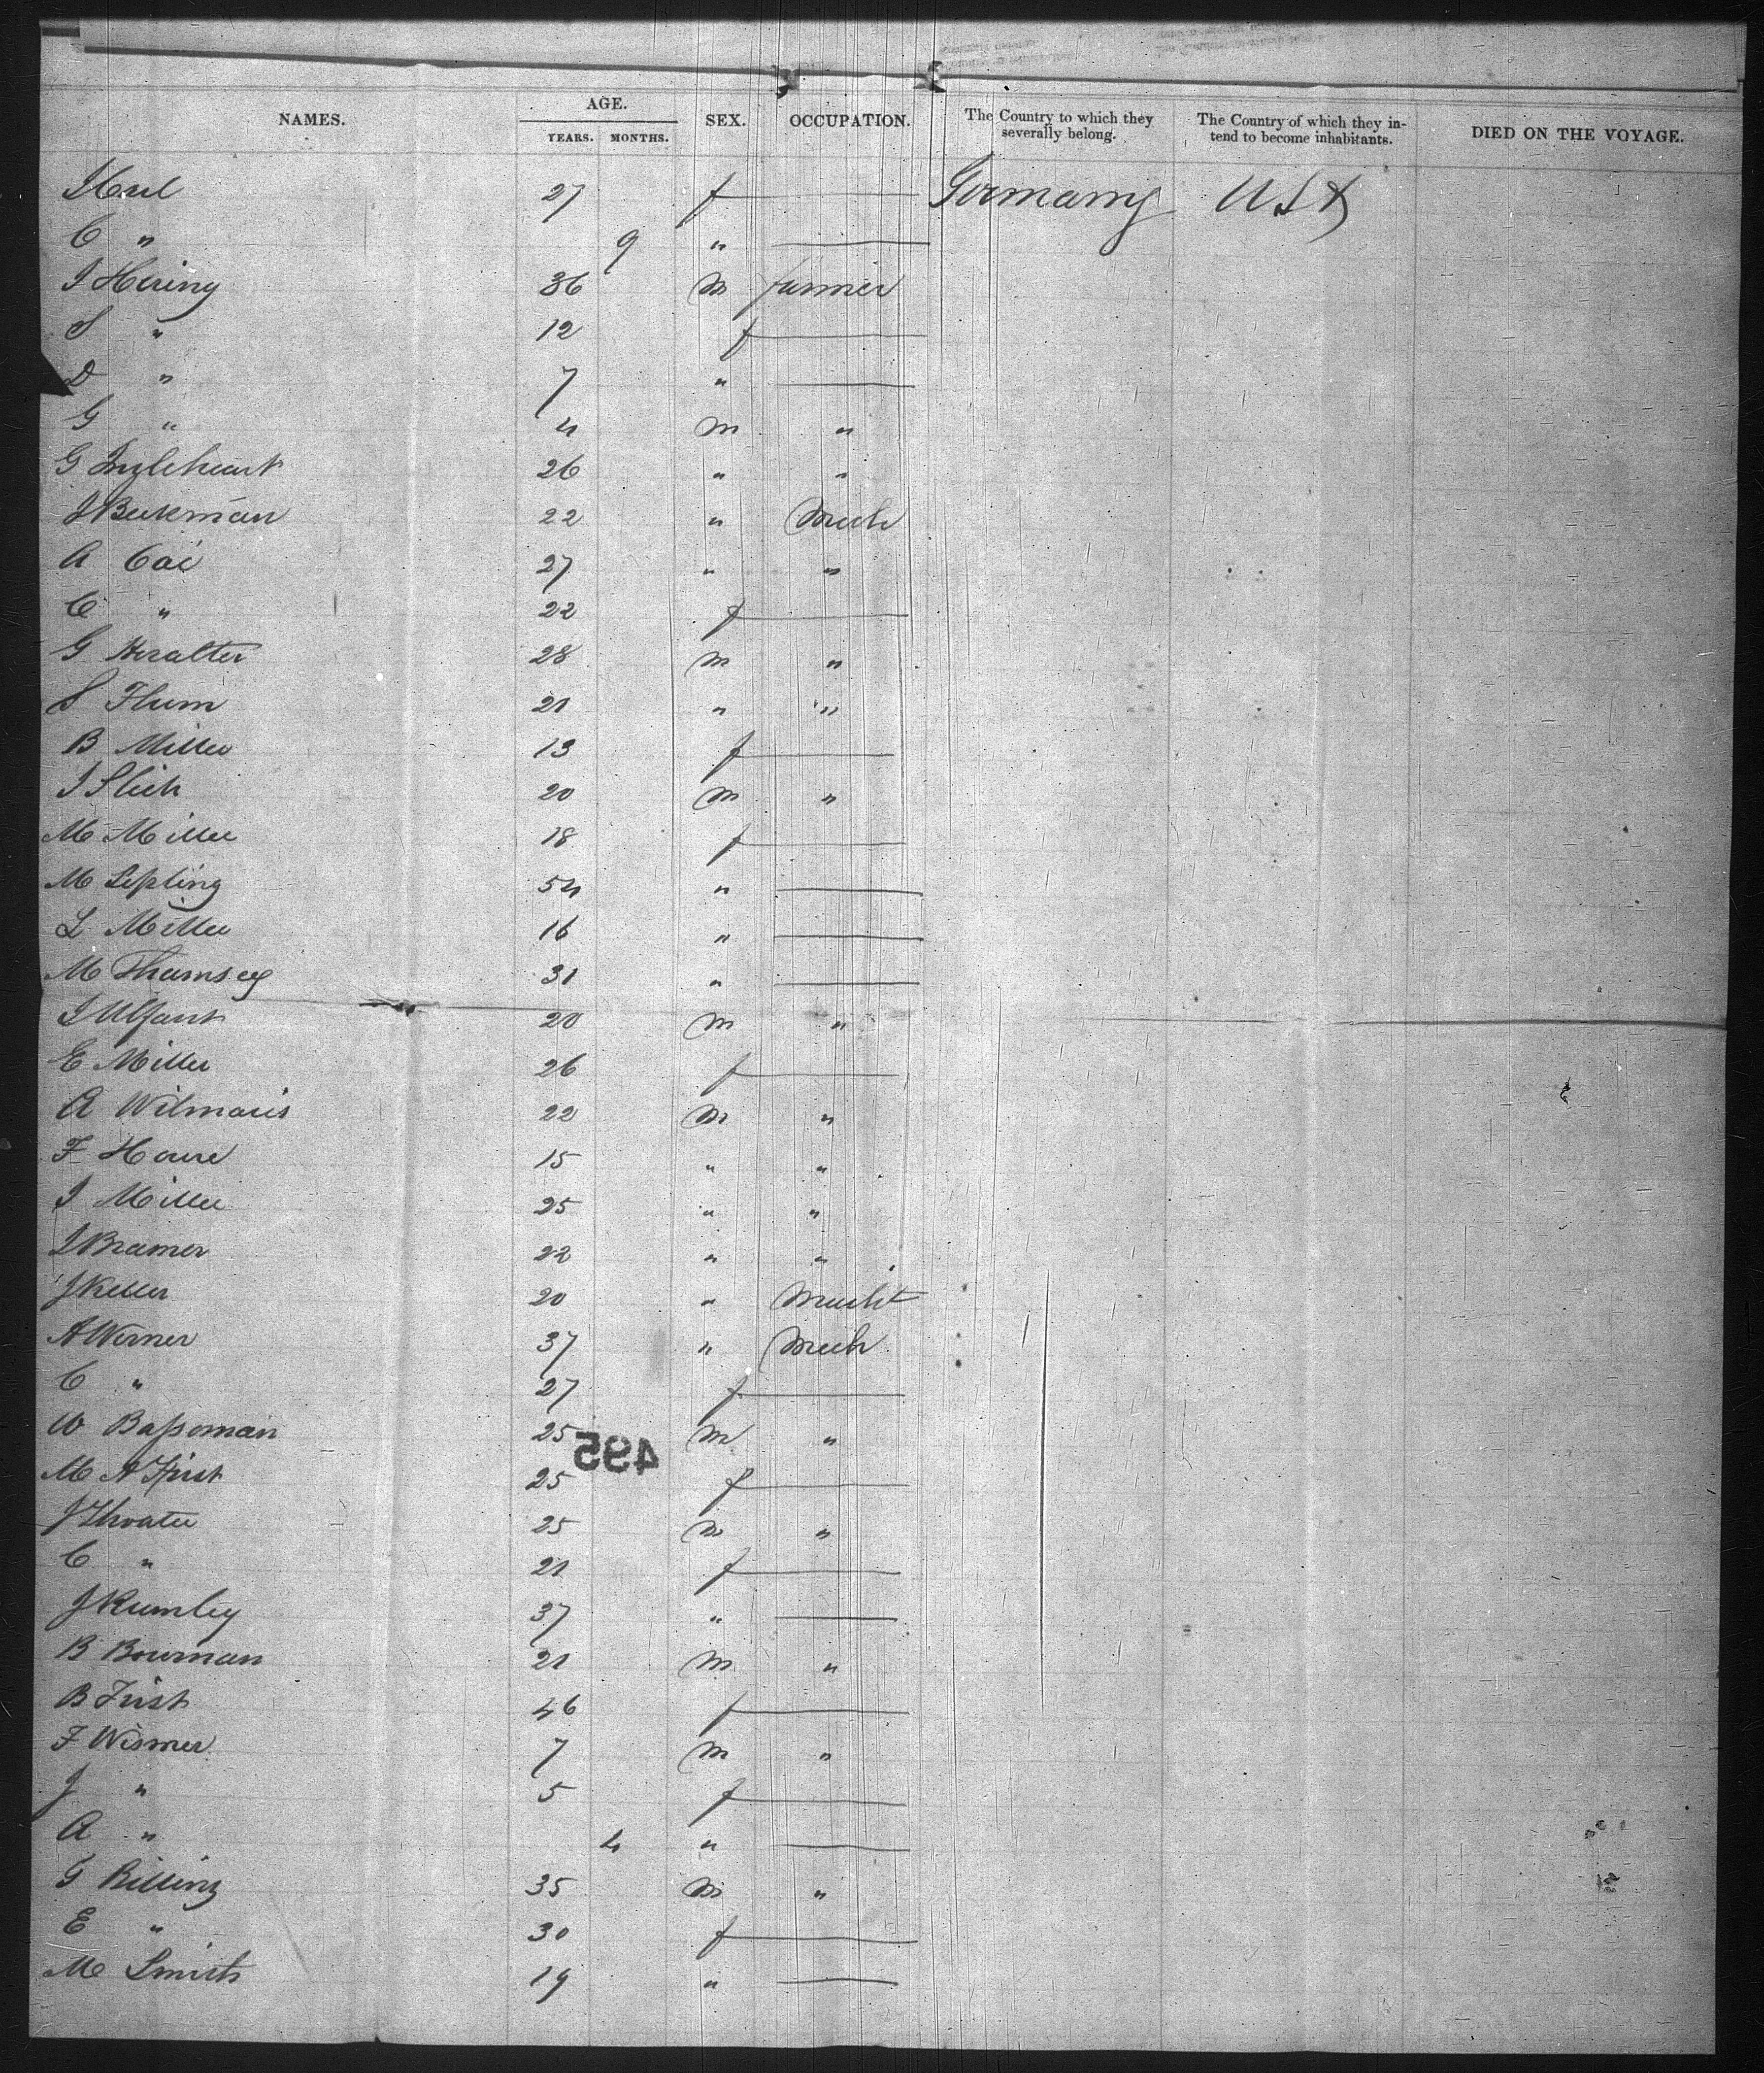 NAMES. AGE. YEARS. MONTHS. SEX. OCCUPATION. The Country to which they severally belong. The Country of which they intend to become inhabitants. DIED ON THE VOYAGE.
27 f — Germany USA
C " 9 " —
J Hering 36 m farmer
S " 12 f —
D " 7 " —
G " 4 m "
G Ingleheart 26 " "
J Beekman 22 " Mech
A Cai 27 " "
C " 22 f —
G Heralter 28 m "
S Flum 21 " "
B Miller 13 f —
J Slich 20 m "
M Miller 18 f —
M Lepling 54 " —
L Miller 16 " —
M 31 " —
J 20 m "
E Miller 26 f —
A Wilmaris 22 m "
F House 15 " "
J Miller 25 " "
J Bramer 22 " "
J Keller 20 " Mecht
A Werner 37 " Mech
C " 27 f —
W Bassoman 25 m "
495
M A First 25 f —
J 25 m "
C " 21 f —
J Rumley 37 " —
B Bowman 21 m "
B First 46 f —
F Wismer 7 m "
J " 5 f —
A " 4 " —
G Billing 35 m "
E " 30 f —
M Smith 19 " —